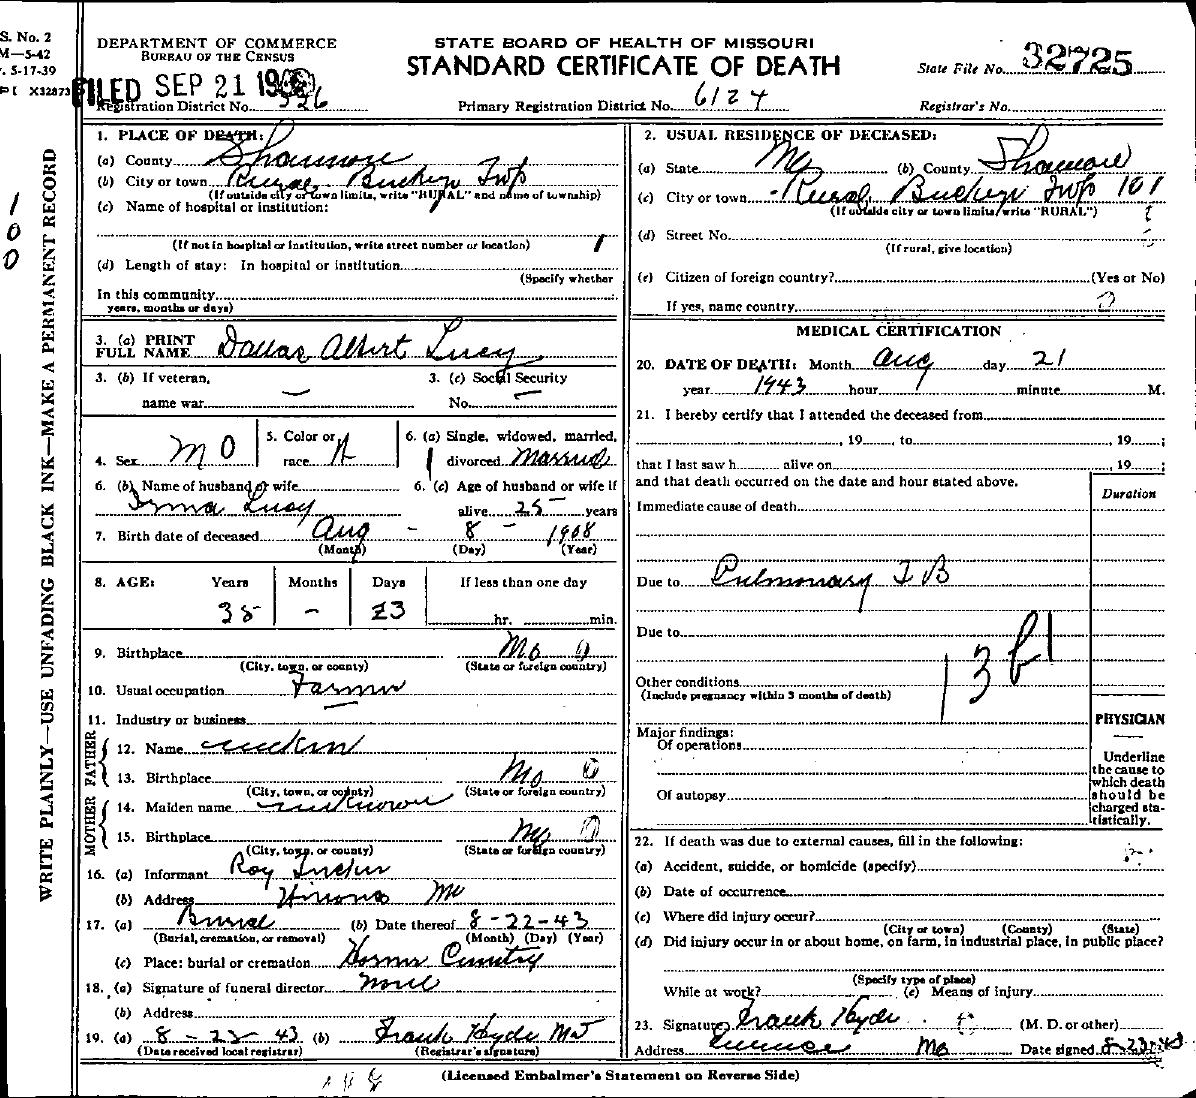 S. No. 2
M—5-42
5-17-39
X32873
DEPARTMENT OF COMMERCE
BUREAU OF THE CENSUS
STATE BOARD OF HEALTH OF MISSOURI
STANDARD CERTIFICATE OF DEATH
State File No. 32725
FILED SEP 21
Registration District No. 526
Primary Registration District No. 6124
Registrar's No.
WRITE PLAINLY—USE UNFADING BLACK INK—MAKE A PERMANENT RECORD
1
0
0
1. PLACE OF DEATH:
(a) County Shannon
(b) City or town Rural Twp
(If outside city or town limits, write "RURAL" and name of township)
(c) Name of hospital or institution:
(If not in hospital or institution, write street number or location)
(d) Length of stay: In hospital or institution
(Specify whether
In this community
years, months or days)
2. USUAL RESIDENCE OF DECEASED:
(a) State Mo (b) County Shannon
(c) City or town Rural Twp 101
(If outside city or town limits, write "RURAL")
(d) Street No.
(If rural, give location)
(e) Citizen of foreign country? (Yes or No)
If yes, name country 0
3. (a) PRINT
FULL NAME Dallas Albert Lucy
3. (b) If veteran, 3. (c) Social Security
name war — No. —
4. Sex M 0 5. Color or race 6. (a) Single, widowed, married,
divorced Married
6. (b) Name of husband or wife 6. (c) Age of husband or wife if
Irma Lucy alive 25 years
7. Birth date of deceased Aug - 8 - 1908
(Month) (Day) (Year)
8. AGE: Years Months Days If less than one day
35 - 23 hr. min.
9. Birthplace Mo 0
(City, town, or county) (State or foreign country)
10. Usual occupation Farmer
11. Industry or business
FATHER
12. Name
13. Birthplace Mo 0
(City, town, or county) (State or foreign country)
MOTHER
14. Maiden name unknown
15. Birthplace Mo 0
(City, town, or county) (State or foreign country)
16. (a) Informant Roy
(b) Address Winona Mo
17. (a) Burial (b) Date thereof 8-22-43
(Burial, cremation, or removal) (Month) (Day) (Year)
(c) Place: burial or cremation
18. (a) Signature of funeral director none
(b) Address
19. (a) 8-23-43 (b) Frank Hyde MD
(Date received local registrar) (Registrar's signature)
MEDICAL CERTIFICATION
20. DATE OF DEATH: Month Aug day 21
year 1943 hour minute M.
21. I hereby certify that I attended the deceased from
, 19 , to , 19 ;
that I last saw h alive on , 19 ;
and that death occurred on the date and hour stated above.
Duration
Immediate cause of death
Due to Pulmonary TB
Due to
13 b1
Other conditions
(Include pregnancy within 3 months of death)
PHYSICIAN
Major findings:
Of operations
Of autopsy
Underline
the cause to
which death
should be
charged sta-
tistically.
22. If death was due to external causes, fill in the following:
(a) Accident, suicide, or homicide (specify)
(b) Date of occurrence
(c) Where did injury occur?
(City or town) (County) (State)
(d) Did injury occur in or about home, on farm, in industrial place, in public place?
(Specify type of place)
While at work? (e) Means of injury
23. Signature Frank Hyde (M. D. or other)
Address Eminence Mo Date signed 8-23-43
(Licensed Embalmer's Statement on Reverse Side)